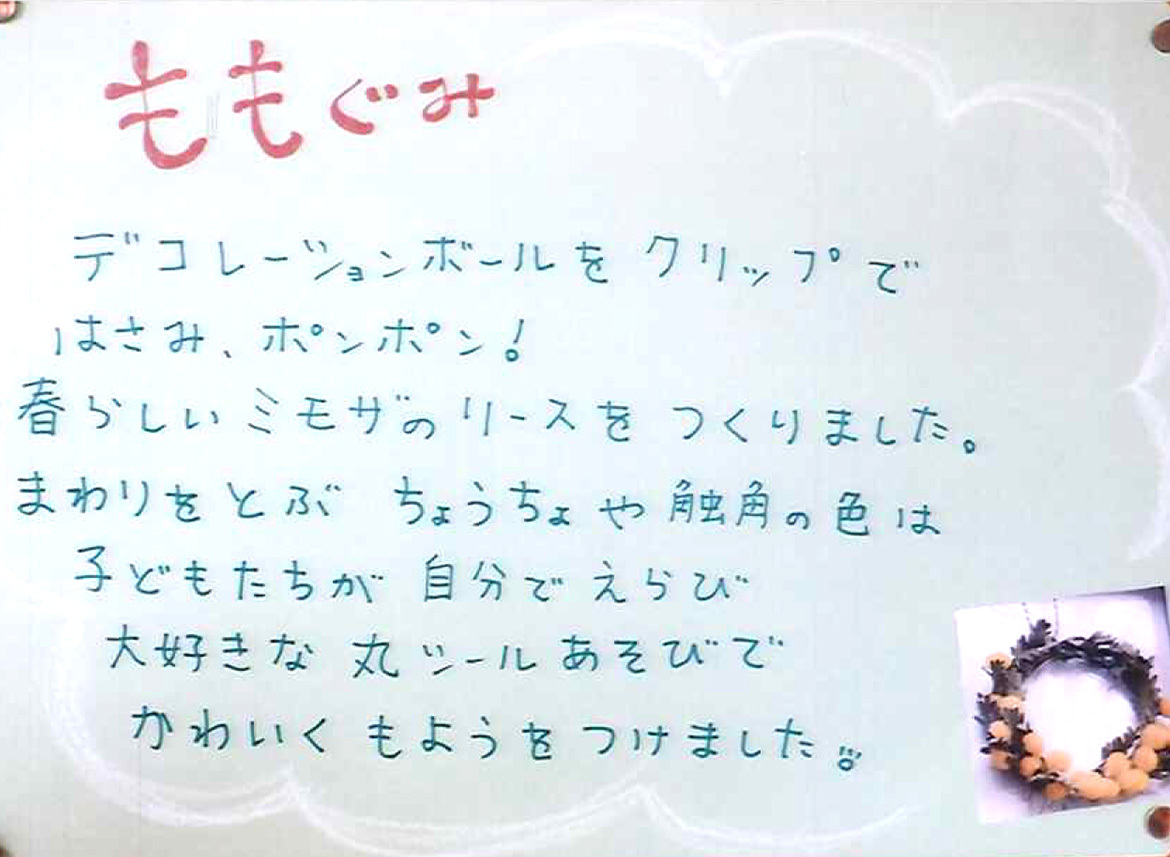 ももぐみ
デコレーションボールをクリップで
はさみ、ポンポン!
春らしいミモザのリースをつくりました。
まわりをとぶ ちょうちょや触角の色は
子どもたちが 自分でえらび
大好きな 丸シールあそびで
かわいく もようをつけました。